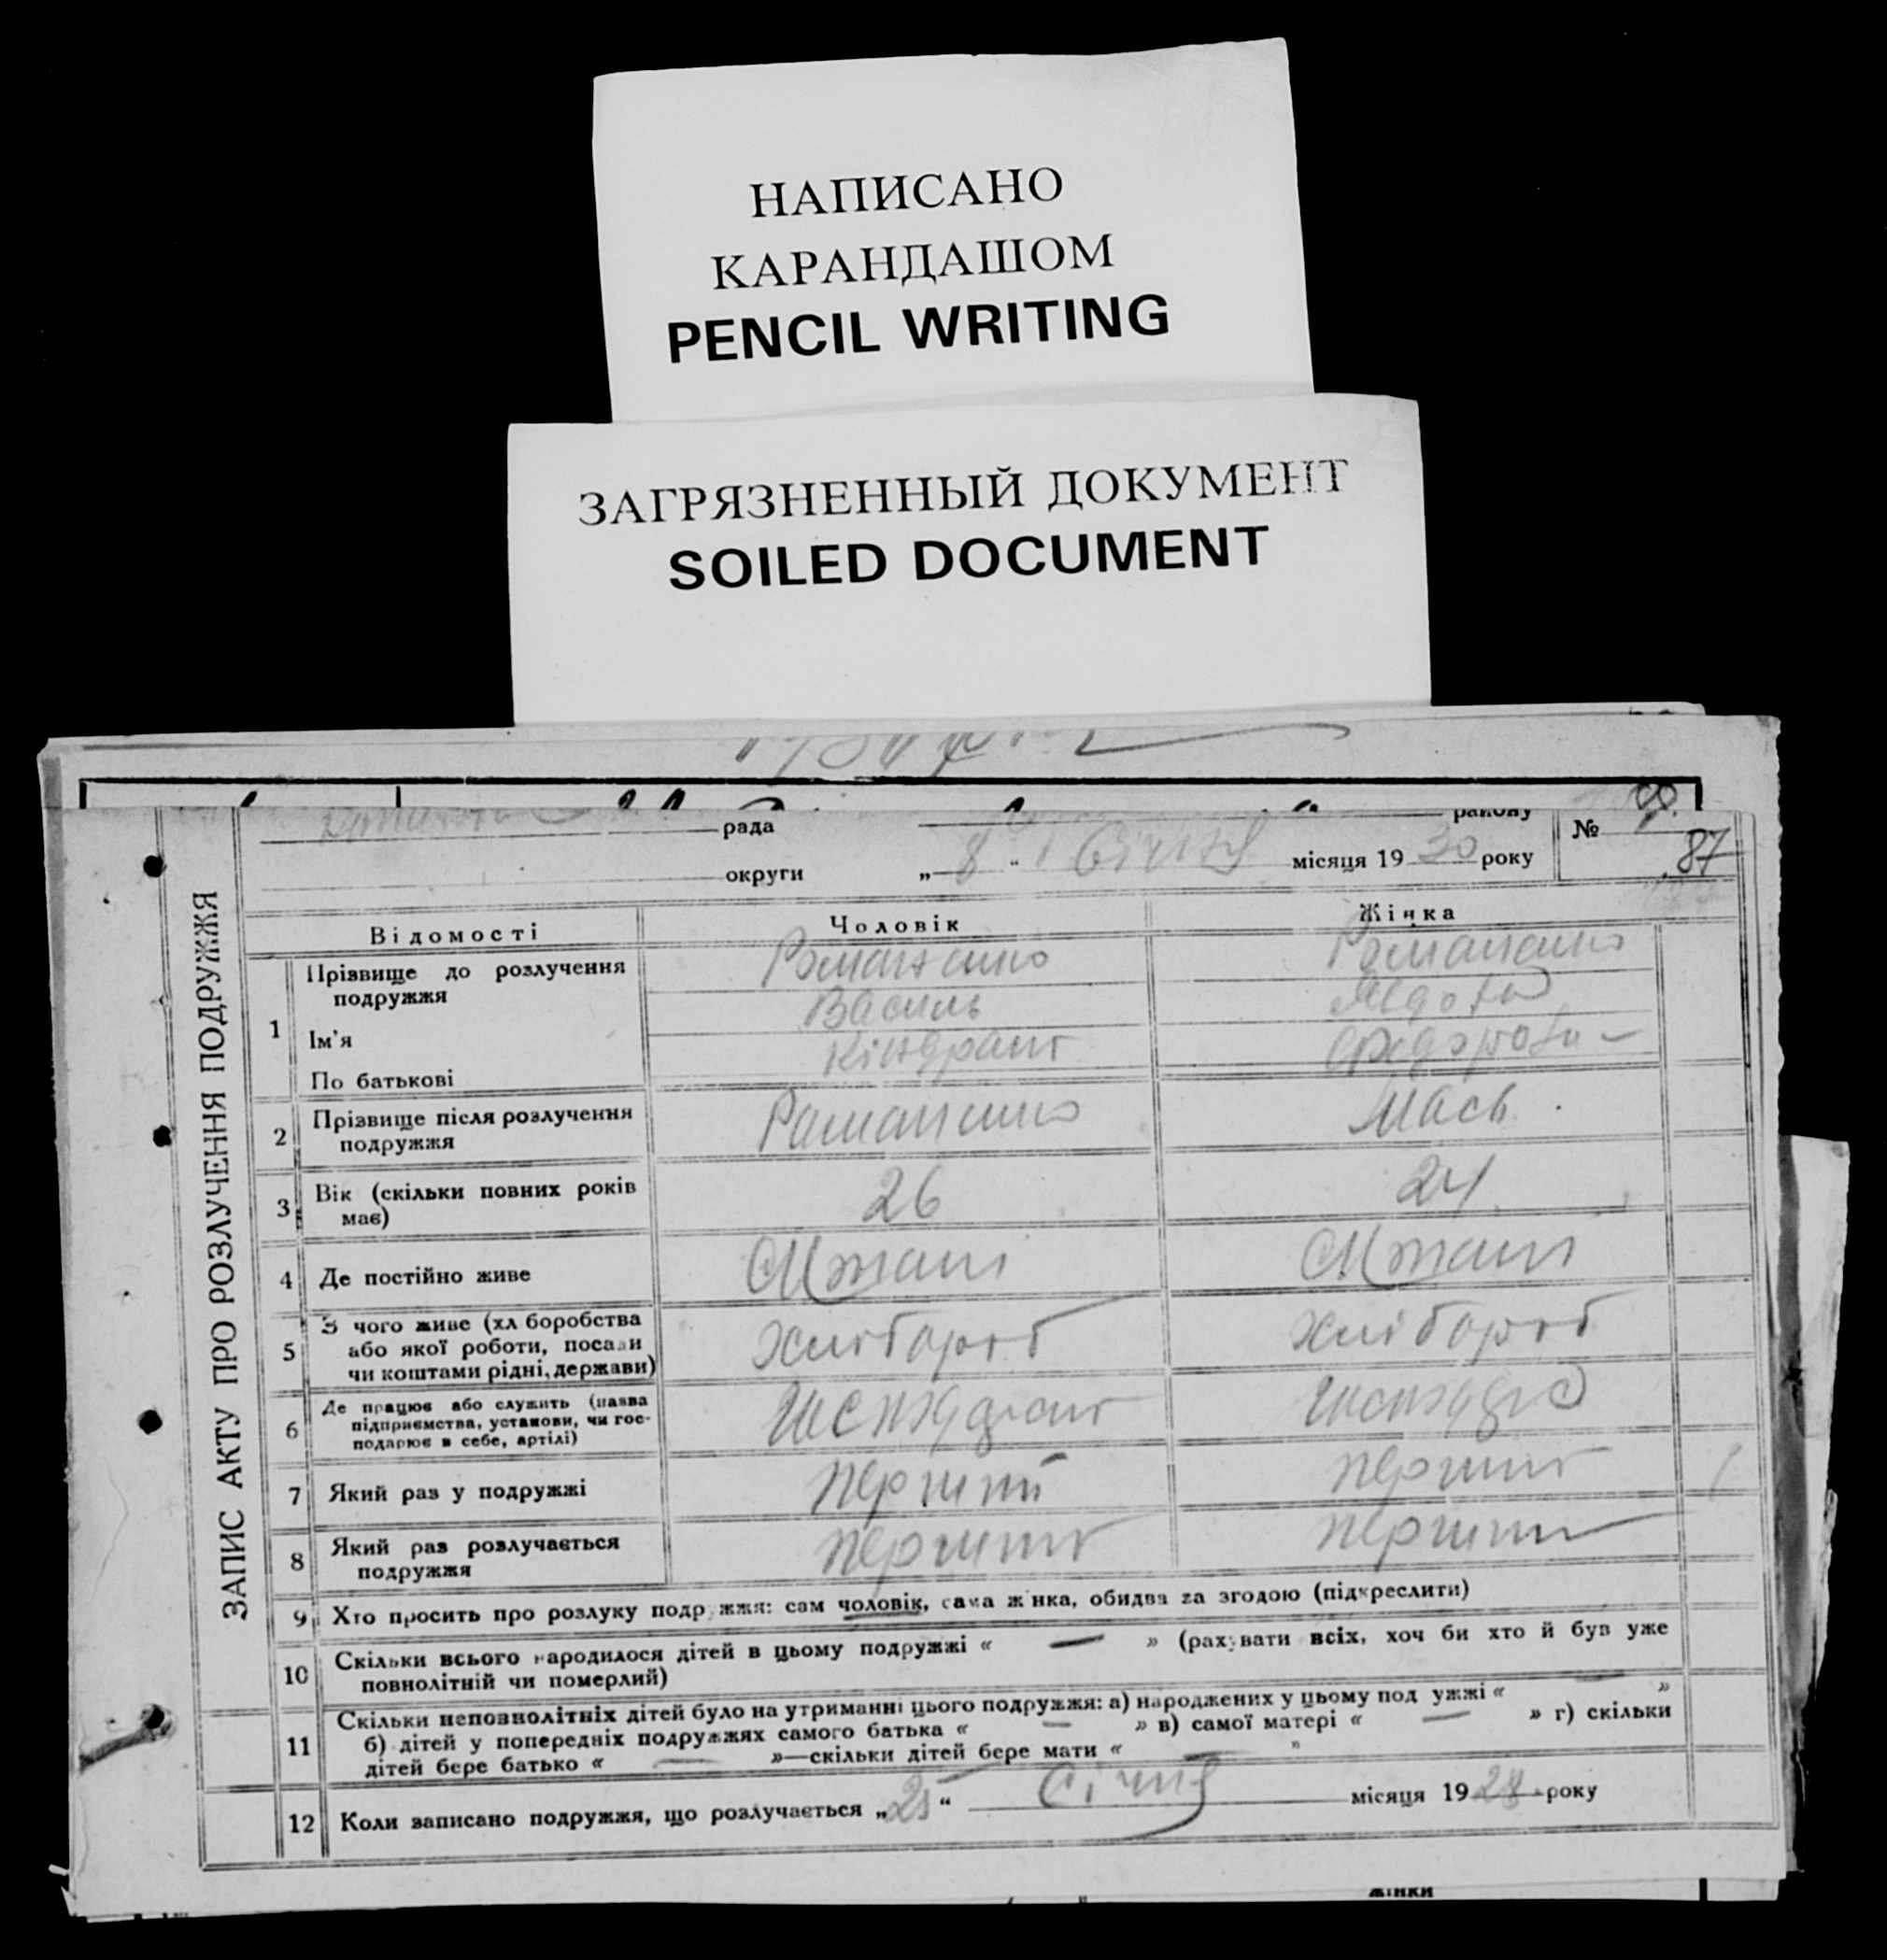 НАПИСАНО
КАРАНДАШОМ
PENCIL WRITING
ЗАГРЯЗНЕННЫЙ ДОКУМЕНТ
SOILED DOCUMENT
ЗАПИС АКТУ ПРО РОЗЛУЧЕННЯ ПОДРУЖЖЯ
рада району №
87
округи „ 8 “ Січня місяця 19 30 року
Відомості Чоловік Жінка
1 Прізвище до розлучення подружжя Романенко Романенко
Ім'я Василь
По батькові Кіндрат Федорова
2 Прізвище після розлучення подружжя Романенко Мась
3 Вік (скільки повних років має) 26 24
4 Де постійно живе
5 З чого живе (хліборобства або якої роботи, посади чи коштами рідні, держави) Хлібороб Хлібороб
6 Де працює або служить (назва підприємства, установи, чи господарює в себе, артілі)
7 Який раз у подружжі перший перший
8 Який раз розлучається подружжя перший перший
9 Хто просить про розлуку подружжя: сам чоловік, сама жінка, обидва за згодою (підкреслити)
10 Скільки всього народилося дітей в цьому подружжі « — » (рахувати всіх, хоч би хто й був уже
повнолітній чи померлий)
11 Скільки неповнолітніх дітей було на утриманні цього подружжя: а) народжених у цьому подружжі « — »
б) дітей у попередніх подружжях самого батька « — » в) самої матері « — » г) скільки
дітей бере батько « — »—скільки дітей бере мати « — »
12 Коли записано подружжя, що розлучається „ 25 “ Січня місяця 19 28 року
жінки